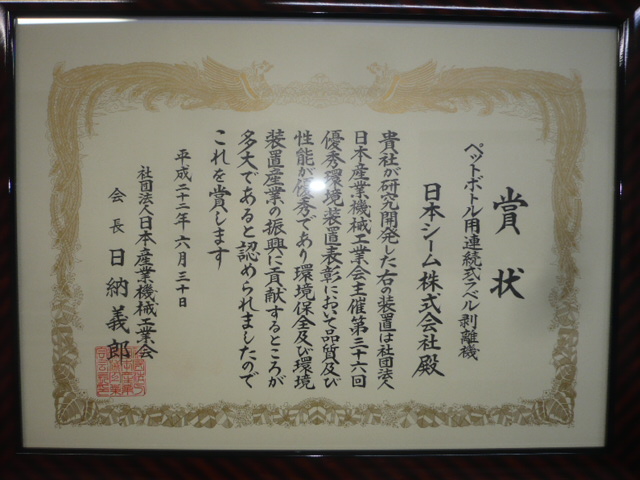 賞状
ペットボトル用連続式ラベル剥離機
日本シーム株式会社殿
貴社が研究開発した右の装置は社団法人
日本産業機械工業会主催第三十六回
優秀環境装置表彰において品質及び
性能が優秀であり環境保全及び環境
装置産業の振興に貢献するところが
多大であると認められましたので
これを賞します
平成二十二年六月三十日
社団法人日本産業機械工業会
会長日納義郎